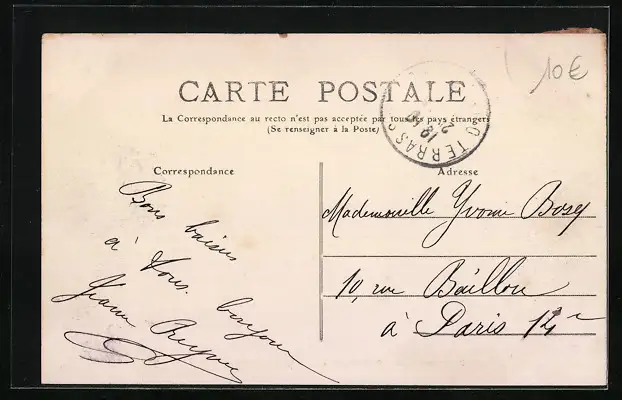 10€
CARTE POSTALE
La Correspondance au recto n'est pas acceptée par tous les pays étrangers
(Se renseigner à la Poste)
TERRASS
18
Correspondance
Bons baisers
à tous. bonjour
Jeanne
Adresse
Mademoiselle Yvonne Bosey
10, rue Baillou
à Paris 14e